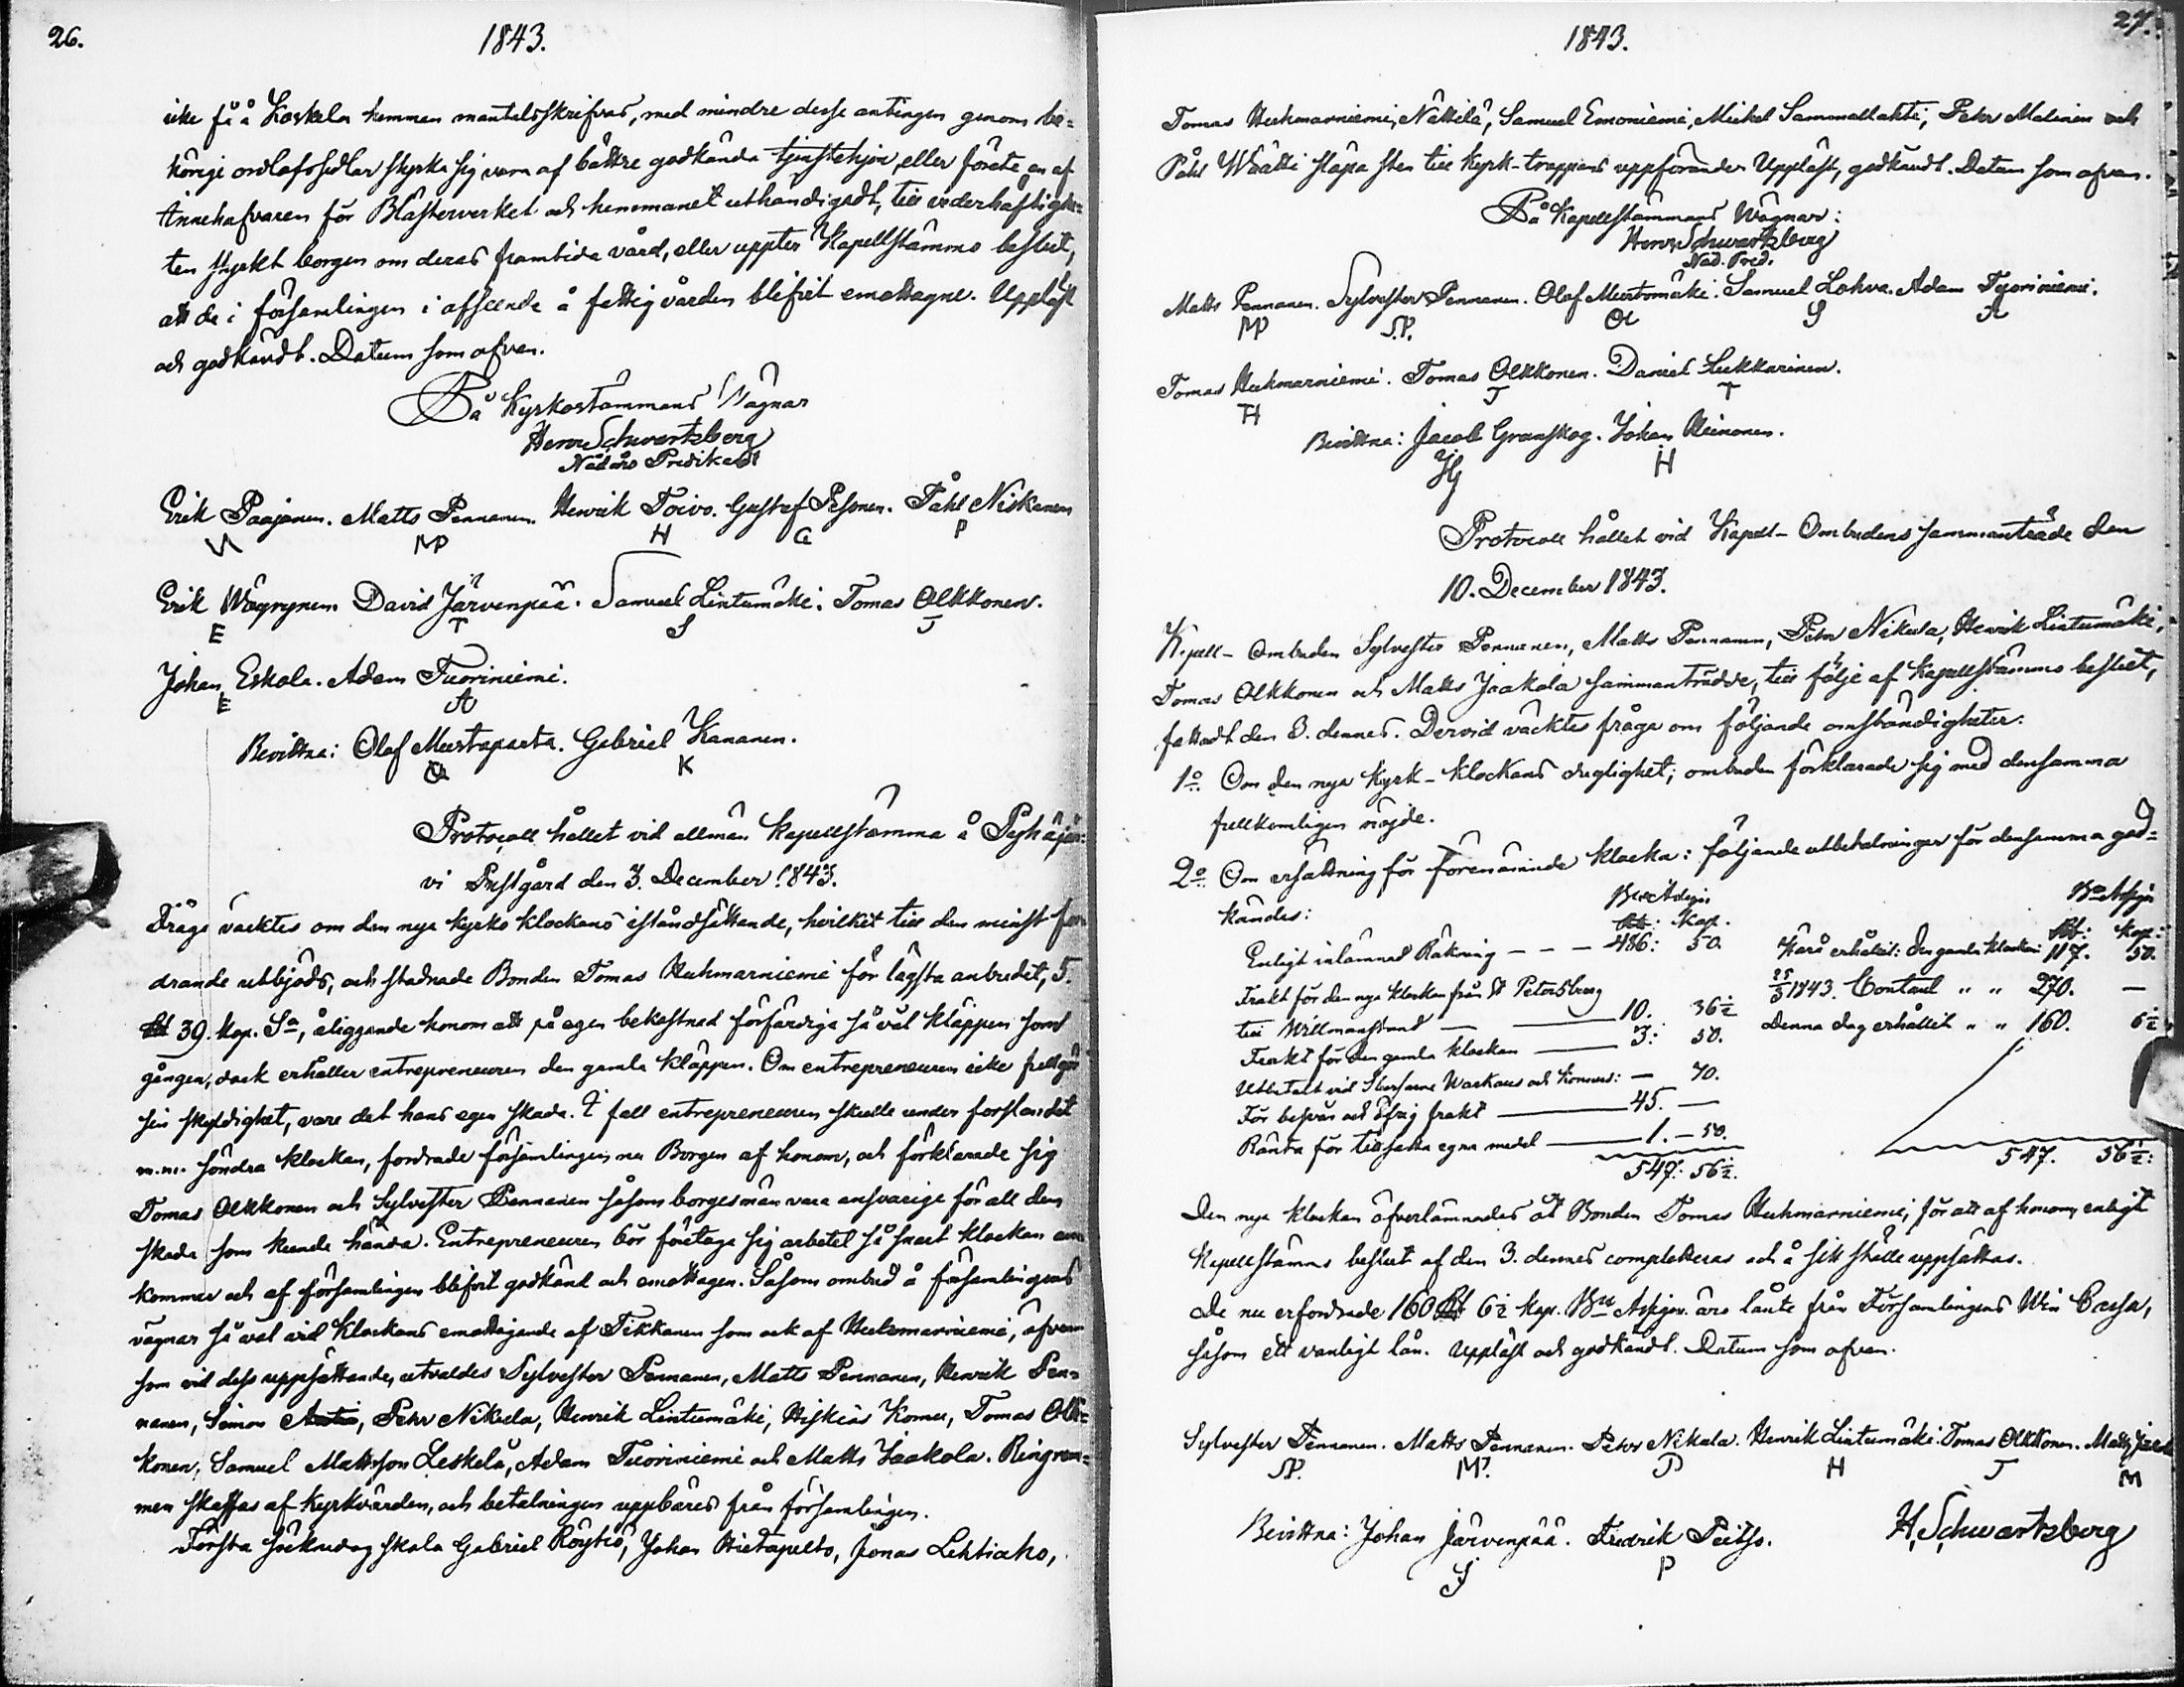 26.
1843.
icke få å Koskela hemman mantalsskrifvas, med mindre desse antingen genom be-
hörige orlofssedlar styrka sig vara af bättre godkända tjenstehjon, eller förete en af
Innehafvaren för Blästerverket och hemmanet uthändigadt, till vederhäftighe-
ten styrkt borgen om deras framtida vård, eller uppter Kapellstämmo beslut,
att de i församlingen i afseende å fattigvården blifvit emottagne. Uppläst
och godkändt. Datum som ofvan.
På Kyrkostämmans Wägnar
Henr. Schwartzberg
Nådårs Predikant
Erik Paajanen. Matts Pennanen. Henrik Toivo. Gustaf Pesonen. Påhl Niskanen
MP H G P
Erik Wäyrynen. David Järvenpää. Samuel Lintumäki. Tomas Olkkonen.
E T S J
Johan Eskola. Adam Tuoriniemi.
E A
Bevittna: Olof Mustaparta. Gabriel Kananen.
O K
Protocoll hållet vid allmän Kapellstämma å Pyhäjär-
vi Prestgård den 3. December 1843.
Fråga väcktes om den nya kyrko klockans iståndsättande, hvilket till den minst for-
drande utbjöds, och stadnade Bonden Tomas Huhmarniemi för lägsta anbudet, 5.
Rbl 39. Kop. Sr, åliggande honom att på egen bekostnad förfärdiga så väl kläppen som
gången, dock erhåller entrepreneuren den gamla kläppen. Om entrepreneuren icke fullgör
sin skyldighet, vare det hans egen skada. I fall entrepreneuren skulle under forslandet
m.m. söndra klockan, fordrade församlingen nu Borgen af honom, och förklarade sig
Tomas Olkkonen och Sylvester Pennanen såsom borgesmän vara ansvarige för all den
skada som kunde hända. Entrepreneuren bör företaga sig arbetet så snart klockan an-
kommer och af församlingen blifvit godkänd och emottagen. Såsom ombud å församlingens
vägnar så väl vid Klockans emottagande af Tikkanen som ock af Huhmarniemi, äfven
som vid dess uppsättande, utvaldes Sylvester Pennanen, Matts Pennanen, Henrik Pen-
nanen, Simon Antio, Petr Nikula, Henrik Lintumäki, Hiskias Komu, Tomas Olk-
konen, Samuel Mattsson Leskelä, Adam Tuoriniemi och Matts Jaakola. Ringrem-
men skaffas af Kyrkvärden, och betalningen uppbäres från församlingen.
Första söknedag skola Gabriel Röytiö, Johan Hietapelto, Jonas Lehtiaho,
27.
1843.
Tomas Huhmarniemi, Nättilä, Samuel Emoniemi, Mickel Sammallahti, Petr Malinen och
Påhl Wäätti släpa sten till Kyrk-trappans uppförande. Uppläst, godkändt. Datum som ofvan.
På Kapellstämmans Wägnar:
Henr. Schwartzberg
Nåd. Pred.
Matts Pennanen. Sylvester Pennanen. Olof Mustomäki. Samuel Lohva. Adam Tuoriniemi.
MP S.P. O S A
Tomas Huhmarniemi. Tomas Olkkonen. Daniel Lukkarinen.
H J T
Bevittna: Jacob Granskog. Johan Heinonen.
JG H
Protocoll hållet vid Kapell-Ombudens sammanträde den
10. December 1843.
Kapell-Ombuden Sylvester Pennanen, Matts Pennanen, Petr Nikula, Henrik Lintumäki,
Tomas Olkkonen och Matts Jaakola sammanträdde, till följe af Kapellstämmo beslut,
fattadt den 3. dennes. Dervid väcktes fråga om följande omständigheter:
1o. Om den nya Kyrk-Klockans duglighet; ombuden förklarade sig med densamma
fullkomligen nöjde.
2o. Om ersättning för förenämnde klocka: följande utbetalningar för densamma god-
kändes:
Bco Assign.
Rbl: Kop.
Enligt inlämnad Räkning — — — 486: 50.
Frakt för den nya klockan från St Petersburg
till Willmanstrand — 10. 36½
Frakt för den gamla klockan — 3: 50.
Utbetalt vid Slussarne Warkaus och Konnus: — 70.
För besvär och öfrig frakt — 45. —
Ränta för tillsatta egna medel — 1. — 50.
547: 56½.
Bo Assign
Rbl: Kop:
Härå erhållit: den gamla klockan 117. 50.
25/3 1843. Contant „ „ 270. —
Denna dag erhållit „ „ 160. 6½
547. 56½:
Den nya klockan öfverlämnades åt Bonden Tomas Huhmarniemi, för att af honom enligt
Kapellstämmo beslut af den 3. dennes completteras och å sitt ställe uppsättas.
De nu erfordrade 160 Rbl 6½ Kop. Bco Assign. äro lånte från Församlingens Win Cassa,
såsom ett vanligt lån. Uppläst och godkändt. Datum som ofvan.
Sylvester Pennanen. Matts Pennanen. Petr Nikula. Henrik Lintumäki. Tomas Olkkonen. Matts Jaakola
SP. MP. P H J M
Bevittna: Johan Järvenpää. Fredrik Peitso.
J P
H. Schwartzberg